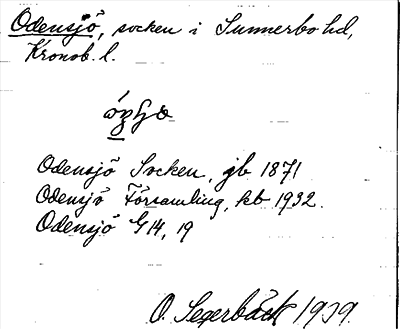 Odensjö, socken i Sunnerbo hd,
Kronob. l.
Odensjö Socken, gb 1871
Odensjö Församling, kb 1932.
Odensjö G14, 19
O. Segerbäck 1939.